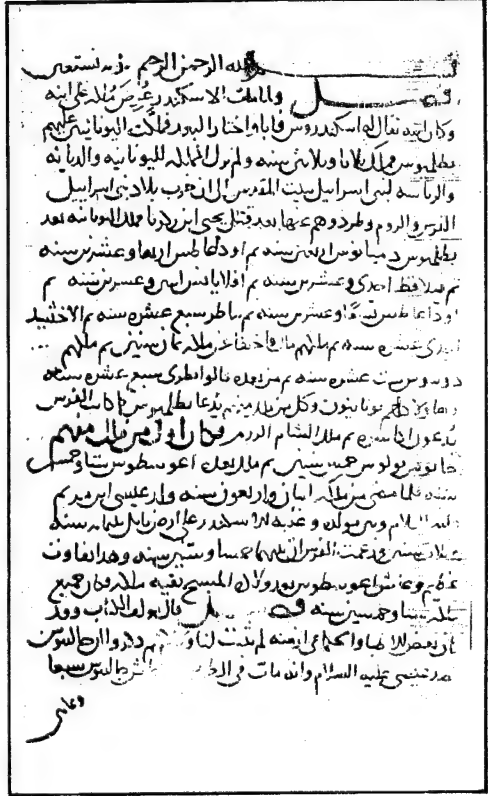 بسم الله الرحمن الرحيم وبه نستعين
فصل ولما مات الاسكندر عرض ملكه على ابنه
وكان ابنه يقال له اسكندروس فابا واختار التعبد فملكت اليونانية عليهم
بطلميوس فملك ثمانيا وثلاثين سنه ولم تزل المملكه لليونانيه والديانه
والرياسه لبني اسراييل ببيت المقدس الى ان خرب بلاد بني اسراييل
الفرس والروم وطردوهم عنها بعد قتل يحيى ابن زكريا ملك اليونانيه بعد
بطلميوس دميانوس اربعين سنه ثم اوداعاطس اربعا وعشرين سنه
ثم فيلافظ احدى وعشرين سنه ثم افلابانس اثنين وعشرين سنه ثم
اوداعاطس تسعا وعشرين سنه ثم ساطر سبع عشره سنه ثم الاخشيد
احدى عشره سنه ثم ملكهم ملك واختفا عن ملكه ثمان سنين ثم ملكهم
دوسوس ست عشره سنه ثم من بعده قالوا بطرى سبع عشره سنه
وهاولاء كلهم يونانيون وكل من ملك منهم يدعا بطلميوس كما كانت الفرس
يدعون اكاسره ثم ملك الشام الروم فكان اول من ملك منهم
خايوس يولوس خمس سنين ثم ملك بعده اغوسطوس ستا وخمسين
سنه فلما مضى من ملكه اثنان واربعون سنه ولد عيسى ابن مريم
عليه السلام وبين مولده وغلبه الاسكندر على ارض بابل ثلثمايه سنه
وثلاث سنين وزعمت الفرس ان بينهما خمسا وستين سنه وهذا تفاوت
عظيم وعاش اغوسطوس بعد ولاد المسيح بقيه ملكه فكان جميع
ملكه ستا وخمسين سنه فصل قال مولف الكتاب وقد
كان بعض الاطباء والحكماء في ازمنه لم تثبت لنا وذكرهم وذكروا ان جالينوس
بعد عيسى عليه السلام وانه مات في جالينوس سبعا
وثماني